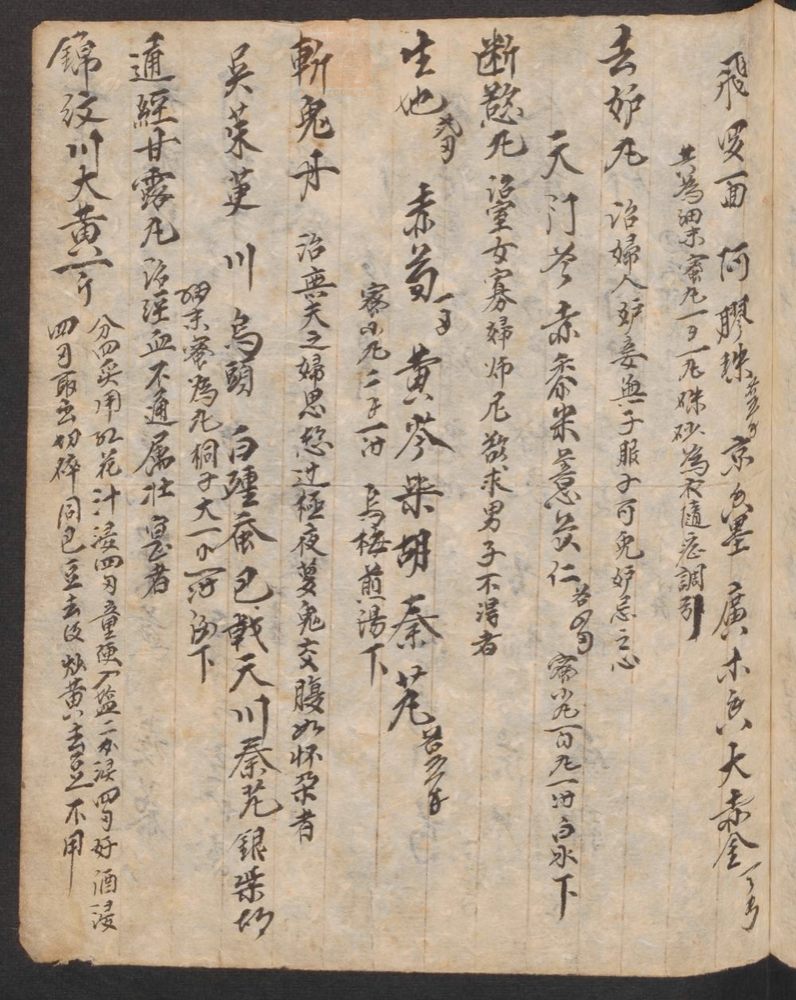 飛羅面 阿膠珠 京香墨 廣木香 大赤金
共為細末蜜丸一丸硃砂為衣隨症調引
去妒丸 治婦人妒妾無子服之可免妒忌之心
天門冬 赤黍米 薏苡仁
蜜小丸百丸一服白水下
断慾丸 治室女寡婦师尼欲求男子不得者
生地 赤芍 黄芩 柴胡 秦艽
蜜小丸二十一服 烏梅煎湯下
斬鬼丹 治無夫之婦思慾过極夜夢鬼交腹如怀孕者
吳茱萸 川烏頭 白殭蚕 巴戟天 川秦艽 銀柴胡
細末蜜為丸桐子大一服酒下
通經甘露丸 治經血不通属壮實者
錦纹川大黄一斤
分四頭用红花汁浸四童便入盐二分浸四好酒浸
四取出切碎同巴豆去皮炒黄去豆不用